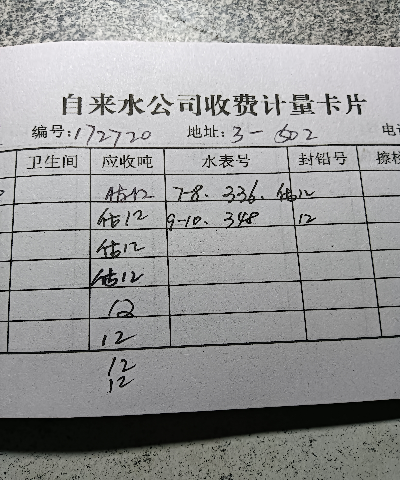 自来水公司收费计量卡片
编号:172720 地址:3-602 电
卫生间 应收吨 水表号 封铅号 擦
估12 7-8. 336. 估12
估12 9-10. 348 12
估12
估12
12
12
12
12